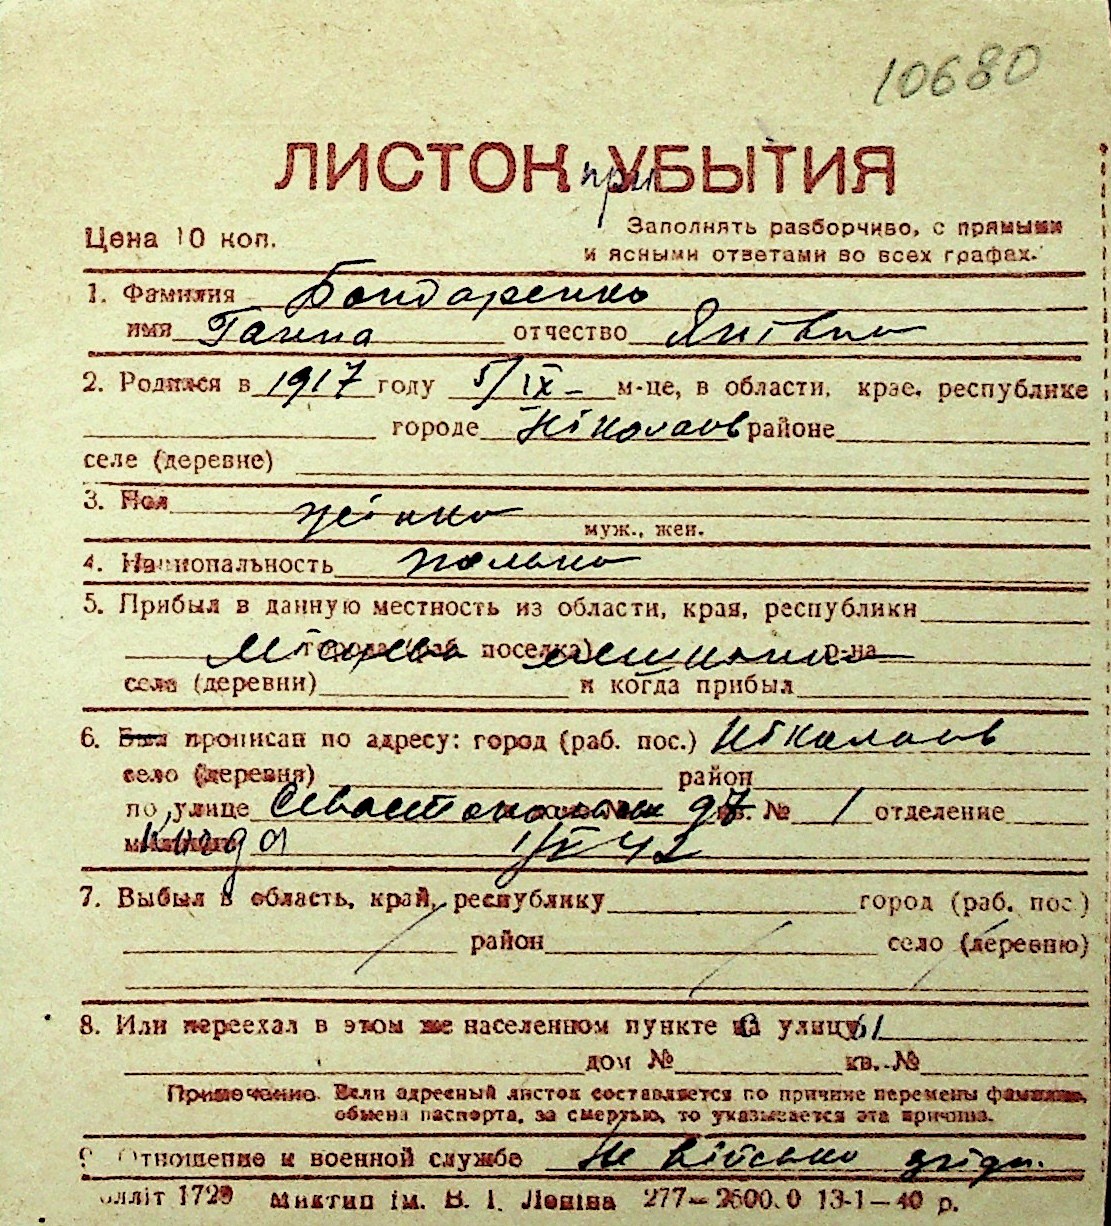 10680
ЛИСТОК при УБЫТИЯ
Цена 10 коп.
Заполнять разборчиво, с прямыми
и ясными ответами во всех графах.
1. Фамилия Бондаренко
имя Ганна отчество
2. Родился в 1917 году 5/IX м-це, в области, крае, республике
городе Ніколаїв районе
селе (деревне)
3. Пол жінка
муж., жен.
4. Национальность полька
5. Прибыл в данную местность из области, края, республики
города (раб. поселка) місцева мешканка р-на
села (деревни) и когда прибыл
6. Был прописан по адресу: город (раб. пос.) Ніколаїв
село (деревня) район
по улице Севастопольськ 97 кв. № 1 отделение
милиции когда 42
7. Выбыл в область, край, республику город (раб. пос.)
район село (деревню)
8. Или переехал в этом же населенном пункте улицы
дом № кв. №
Примечание. Если адресный листок составляется по причине перемены фамилии,
обмена паспорта, за смертью, то указывается эта причина.
9. Отношение к военной службе Не військово
олліт 1729 Миктип ім. В. І. Леніна 277—2600.0 13-1—40 р.